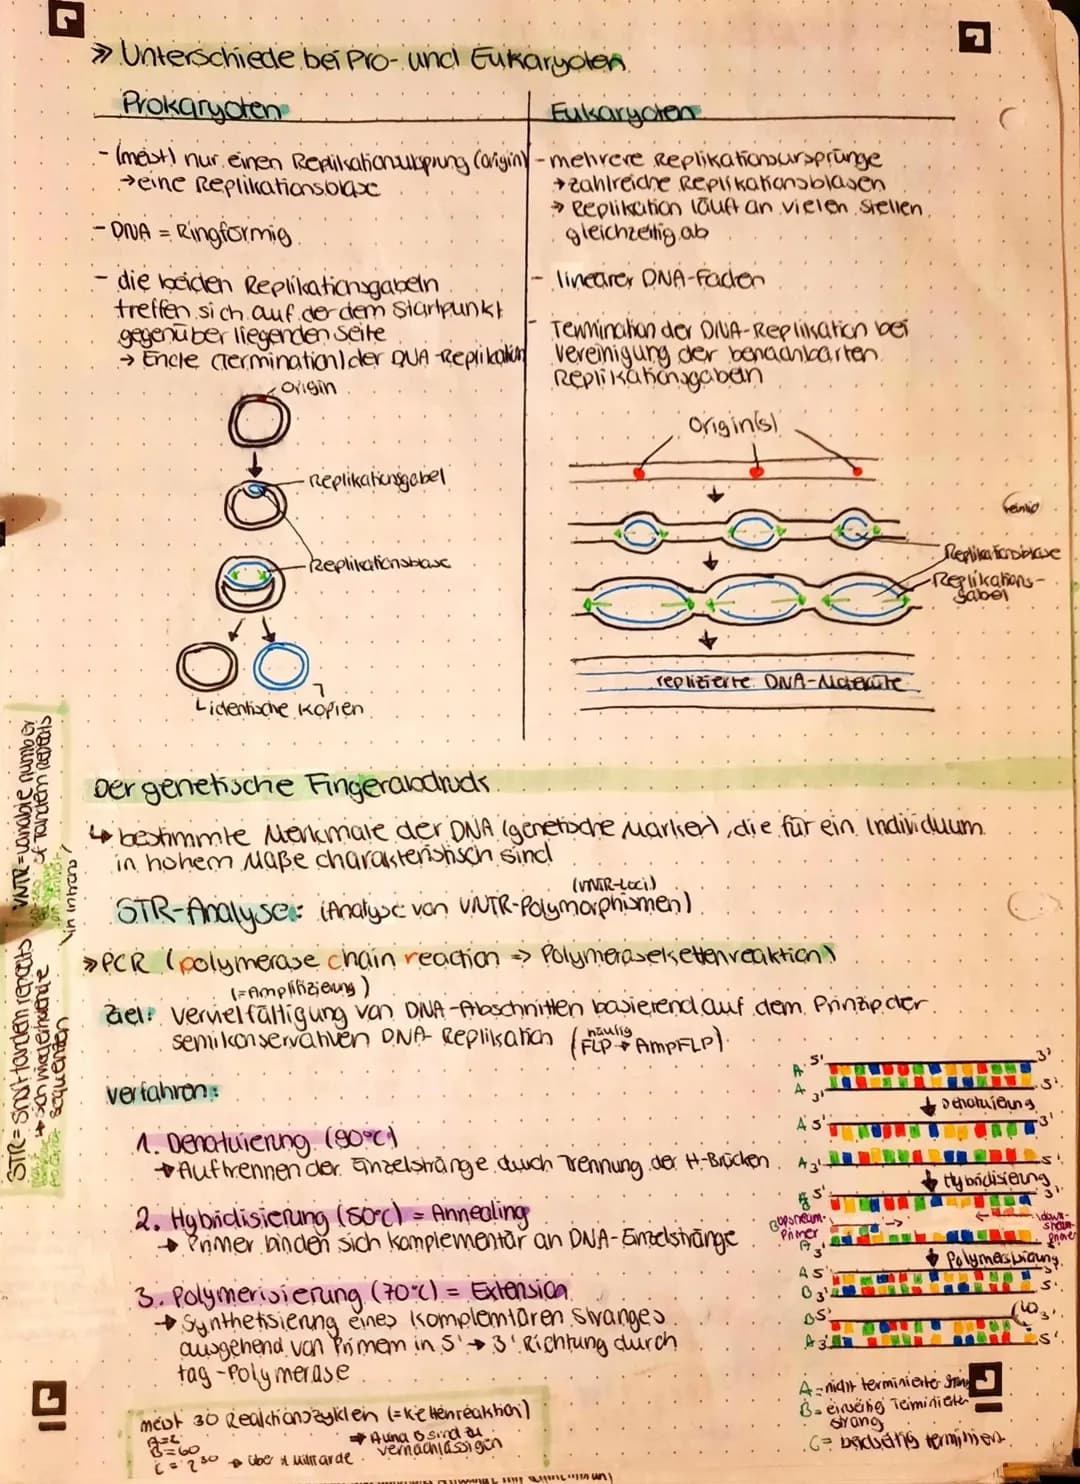 » Unterschiede bei Pro- und Eukaryoten
Prokaryoten
- (meist) nur einen Replikationsursprung (origin)
→ eine Replikationsblase
- DNA = Ringförmig
- die beiden Replikationsgabeln
treffen sich auf der dem Startpunkt
gegenüber liegenden Seite
→ Ende (Termination) der DNA-Replikation
Origin
Replikationsgabel
Replikationsblase
identische Kopien
Eukaryoten
- mehrere Replikationsursprünge
→ zahlreiche Replikationsblasen
→ Replikation läuft an vielen Stellen
gleichzeitig ab
- linearer DNA-Faden
- Termination der DNA-Replikation bei
Vereinigung der benachbarten
Replikationsgabeln
Origin(s)
Replikationsblase
Replikations-
gabel
replizierte DNA-Moleküle
Der genetische Fingerabdruck
↳ bestimmte Merkmale der DNA (genetische Marker), die für ein Individuum
in hohem Maße charakteristisch sind
(VNTR-Loci)
STR-Analyse: (Analyse von VNTR-Polymorphismen)
» PCR (polymerase chain reaction => Polymerasekettenreaktion)
(=Amplifizierung)
Ziel: Vervielfältigung von DNA-Abschnitten basierend auf dem Prinzip der
semikonservativen DNA-Replikation (häufig
FLP → AmpFLP)
Verfahren:
1. Denatuierung (90°C)
→ Auftrennen der Einzelstränge durch Trennung der H-Brücken
2. Hybridisierung (50°C) = Annealing
→ Primer binden sich komplementär an DNA-Einzelstränge
3. Polymerisierung (70°C) = Extension
→ Synthetisierung eines komplemtären Stranges
ausgehend von Primern in 5' → 3' Richtung durch
taq-Polymerase
meist 30 Reaktionszyklen (=Kettenreaktion)
A=2
B=60
C = 2^30 → über 1 Milliarde
→ A und B sind zu
vernachlässigen
A 5' 3'
A 3' 5'
↓ Denatuierung
A 5' 3'
A 3' 5'
↓ Hybridisierung
A 5' 3'
upstream-
Primer
down-
stream-
primer
A 3' 5'
↓ Polymerisierung
A 5' 3'
B 3' 5'
B 5' 3'
A 3' 5'
A = nicht terminierter Strang
B = einseitig Terminierter
strang
C = beidseitig terminiert
STR = short tandem repeats
↳ sich wiederholende
Sequenzen
VNTR = variable number
of tandem repeats
(in Introns)